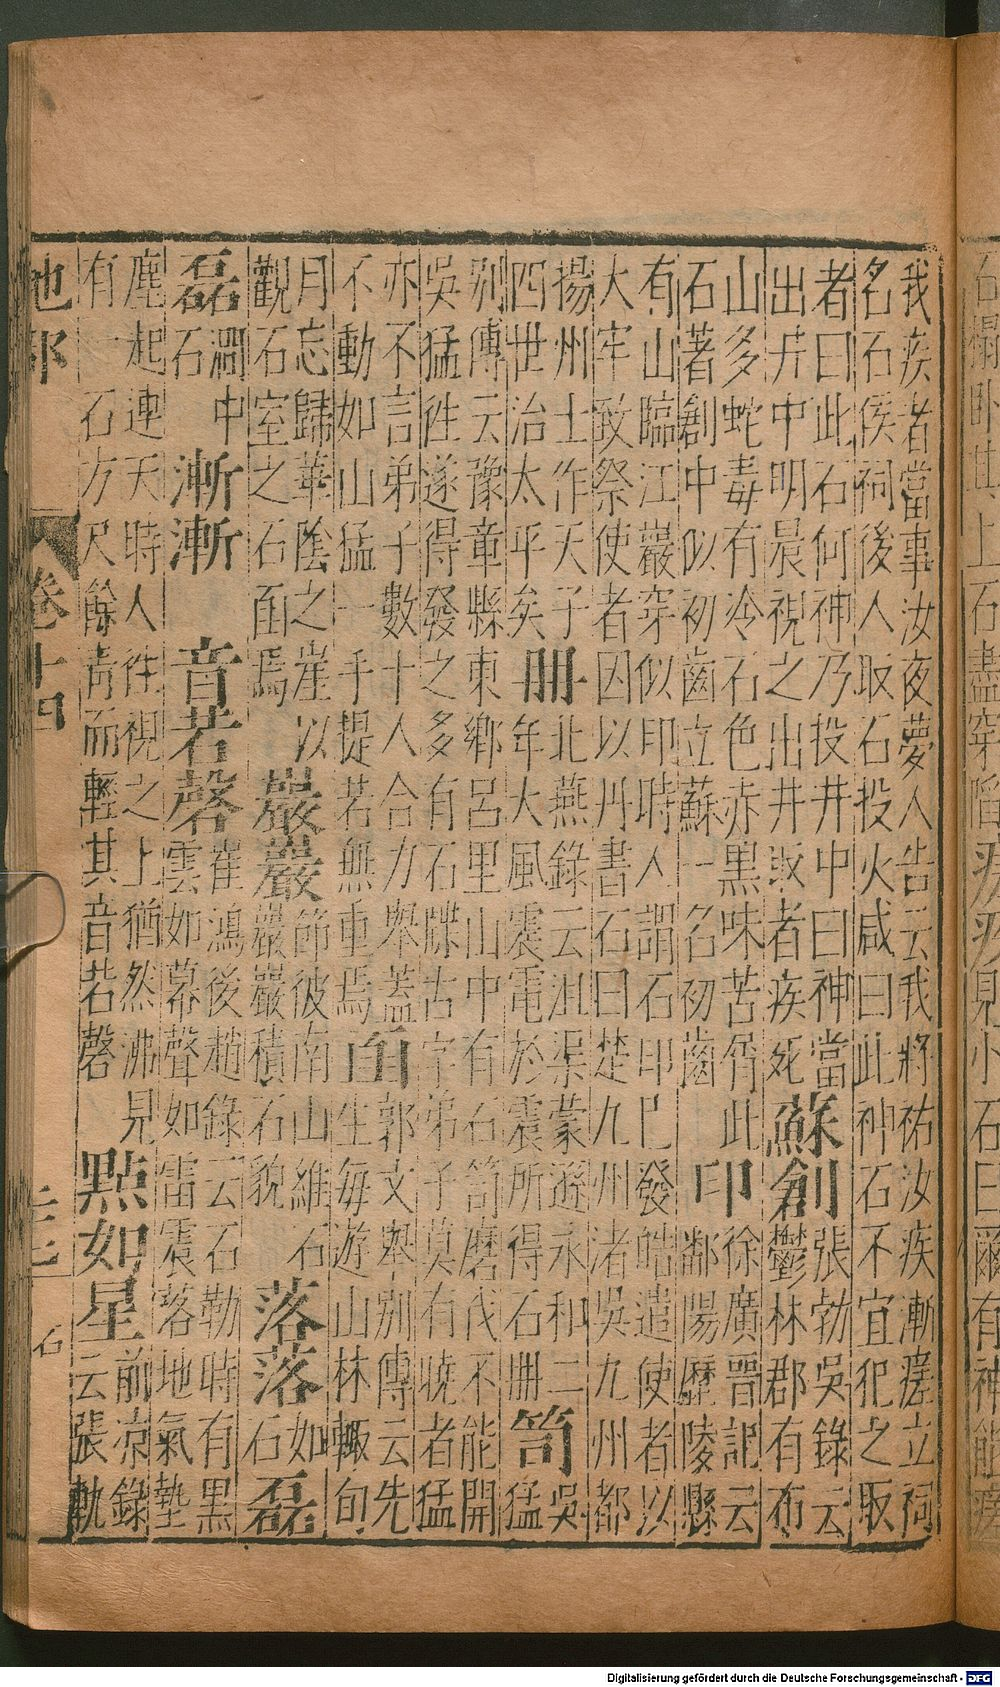 上石盡穿陷
見小石曰爾有神能瘥
我疾者當事汝夜夢人告云我將祐汝疾漸瘥立祠
名石侯祠後人取石投火咸曰此神石不宜犯之取
者曰此石何神乃投井中曰神當
出井中明晨視之出井取者疾死
蘇創
張勃吳錄云
鬱林郡有布
山多蛇毒有冷石色赤黑味苦屑此
石著創中似初齒立蘇一名初齒
印
徐廣晉記云
鄱陽歷陵縣
有山臨江巖穿似印時人謂石印已發皓遣使者以
大牢致祭使者因以丹書石曰楚九州渚吳九州都
揚州士作天子
四世治太平矣
冊
北燕錄云沮渠蒙遜永和二
年大風震電於震所得石冊
笥
吳
猛
別傳云豫章縣東鄉呂里山中有石笥磨伐不能開
吳猛往遂得發之多有石牒古字弟子莫有曉者猛
亦不言弟子數十人合力舉蓋
不動如山猛一手提若無重焉
面
郭文舉別傳云先
生每遊山林輒旬
月忘歸華陰之崖以
觀石室之石面焉
巖巖
節彼南山維石
巖巖積石貌
落落
如
石
磊
磊
澗中
石
漸漸
音若磬
崔鴻後趙錄云石勒時有黑
雲如幕聲如雷震落地氣墊
塵起連天時人往視之上猶然沸見
有一石方尺餘青而輕其音若磬
點如星
前涼錄
云張軌
地部
卷十四
石
Digitalisierung gefördert durch die Deutsche Forschungsgemeinschaft - DFG